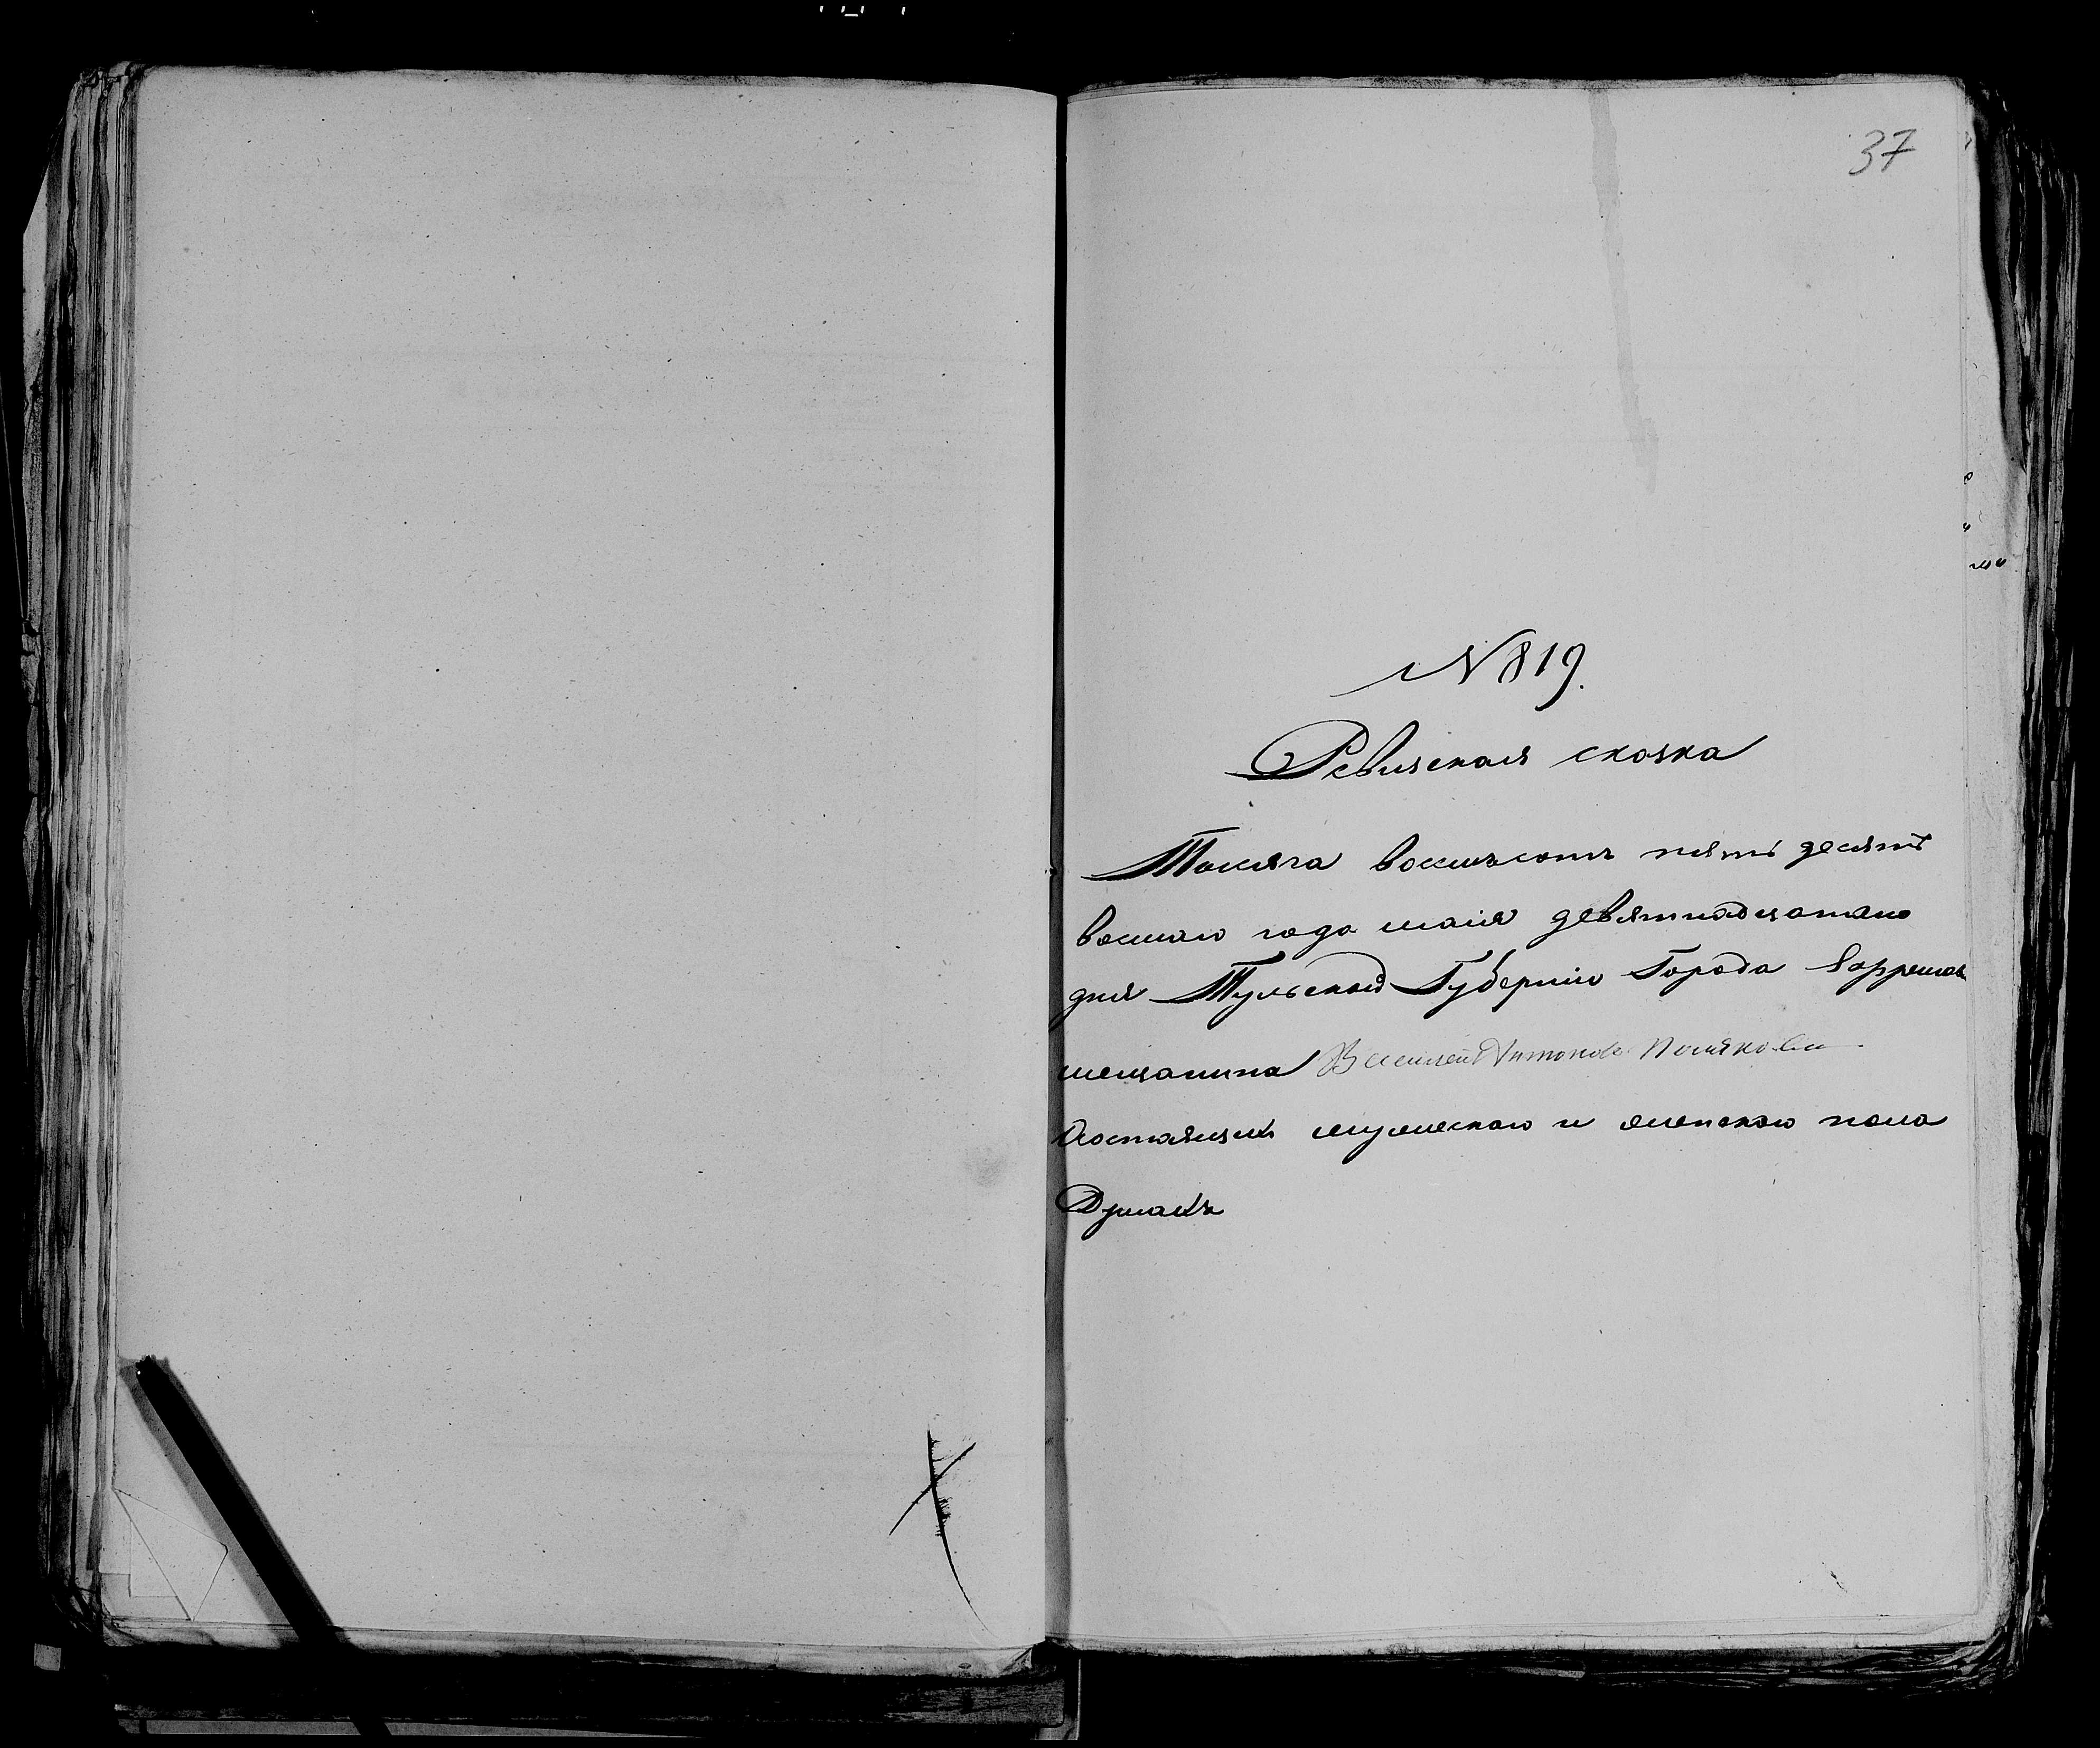 37
N 819.
Ревизская сказка
Тысяча восемьсотъ пять десятъ
восмаго года маія девятнадцатаго
дня Тульской Губерніи Города
мещанина Василія Антонова Полякова
Осостоящихъ мужескаго и женскаго пола
Душахъ